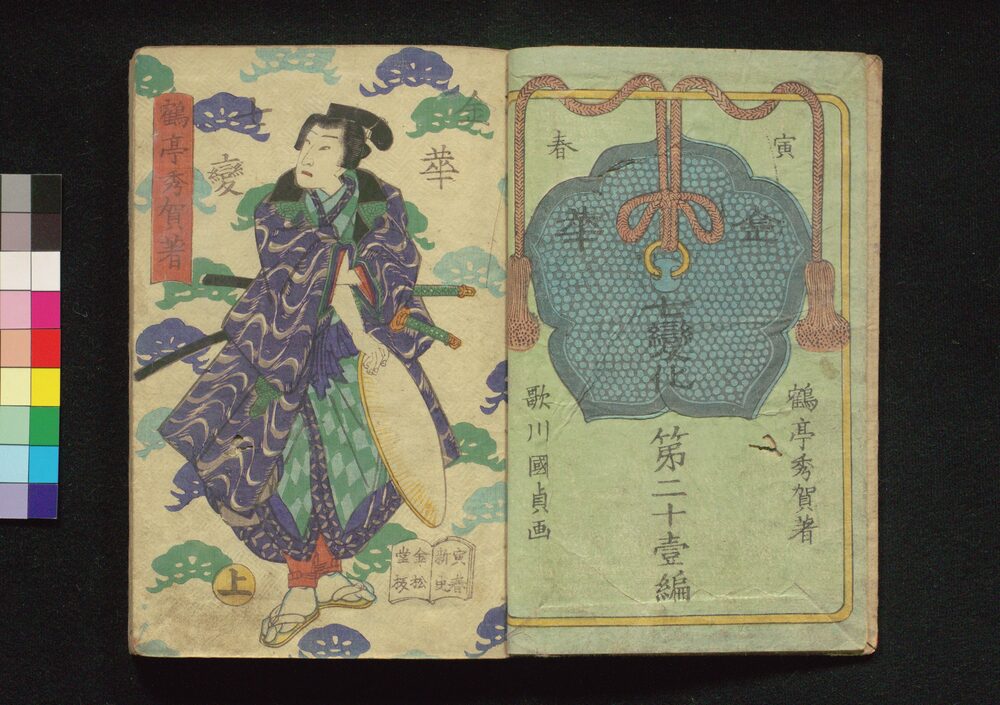 寅春
金華
七變化
第二十壹編
鶴亭秀賀著
歌川國貞画
金華
七變
鶴亭秀賀著
寅春
新史
金松
堂板
上